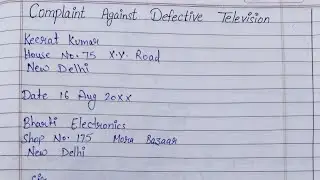 Complaint Against Defective Television
Keerat Kumar
House No. 75 X.Y. Road
New Delhi
Date 16 Aug 20xx
Bharti Electronics
Shop No. 175 Mora Bazaar
New Delhi